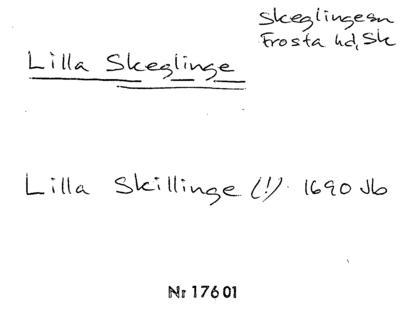 Skeglinge sn
Frosta hd, Sk
Lilla Skeglinge
Lilla Skillinge (!) 1690 Jb
Nr 17601